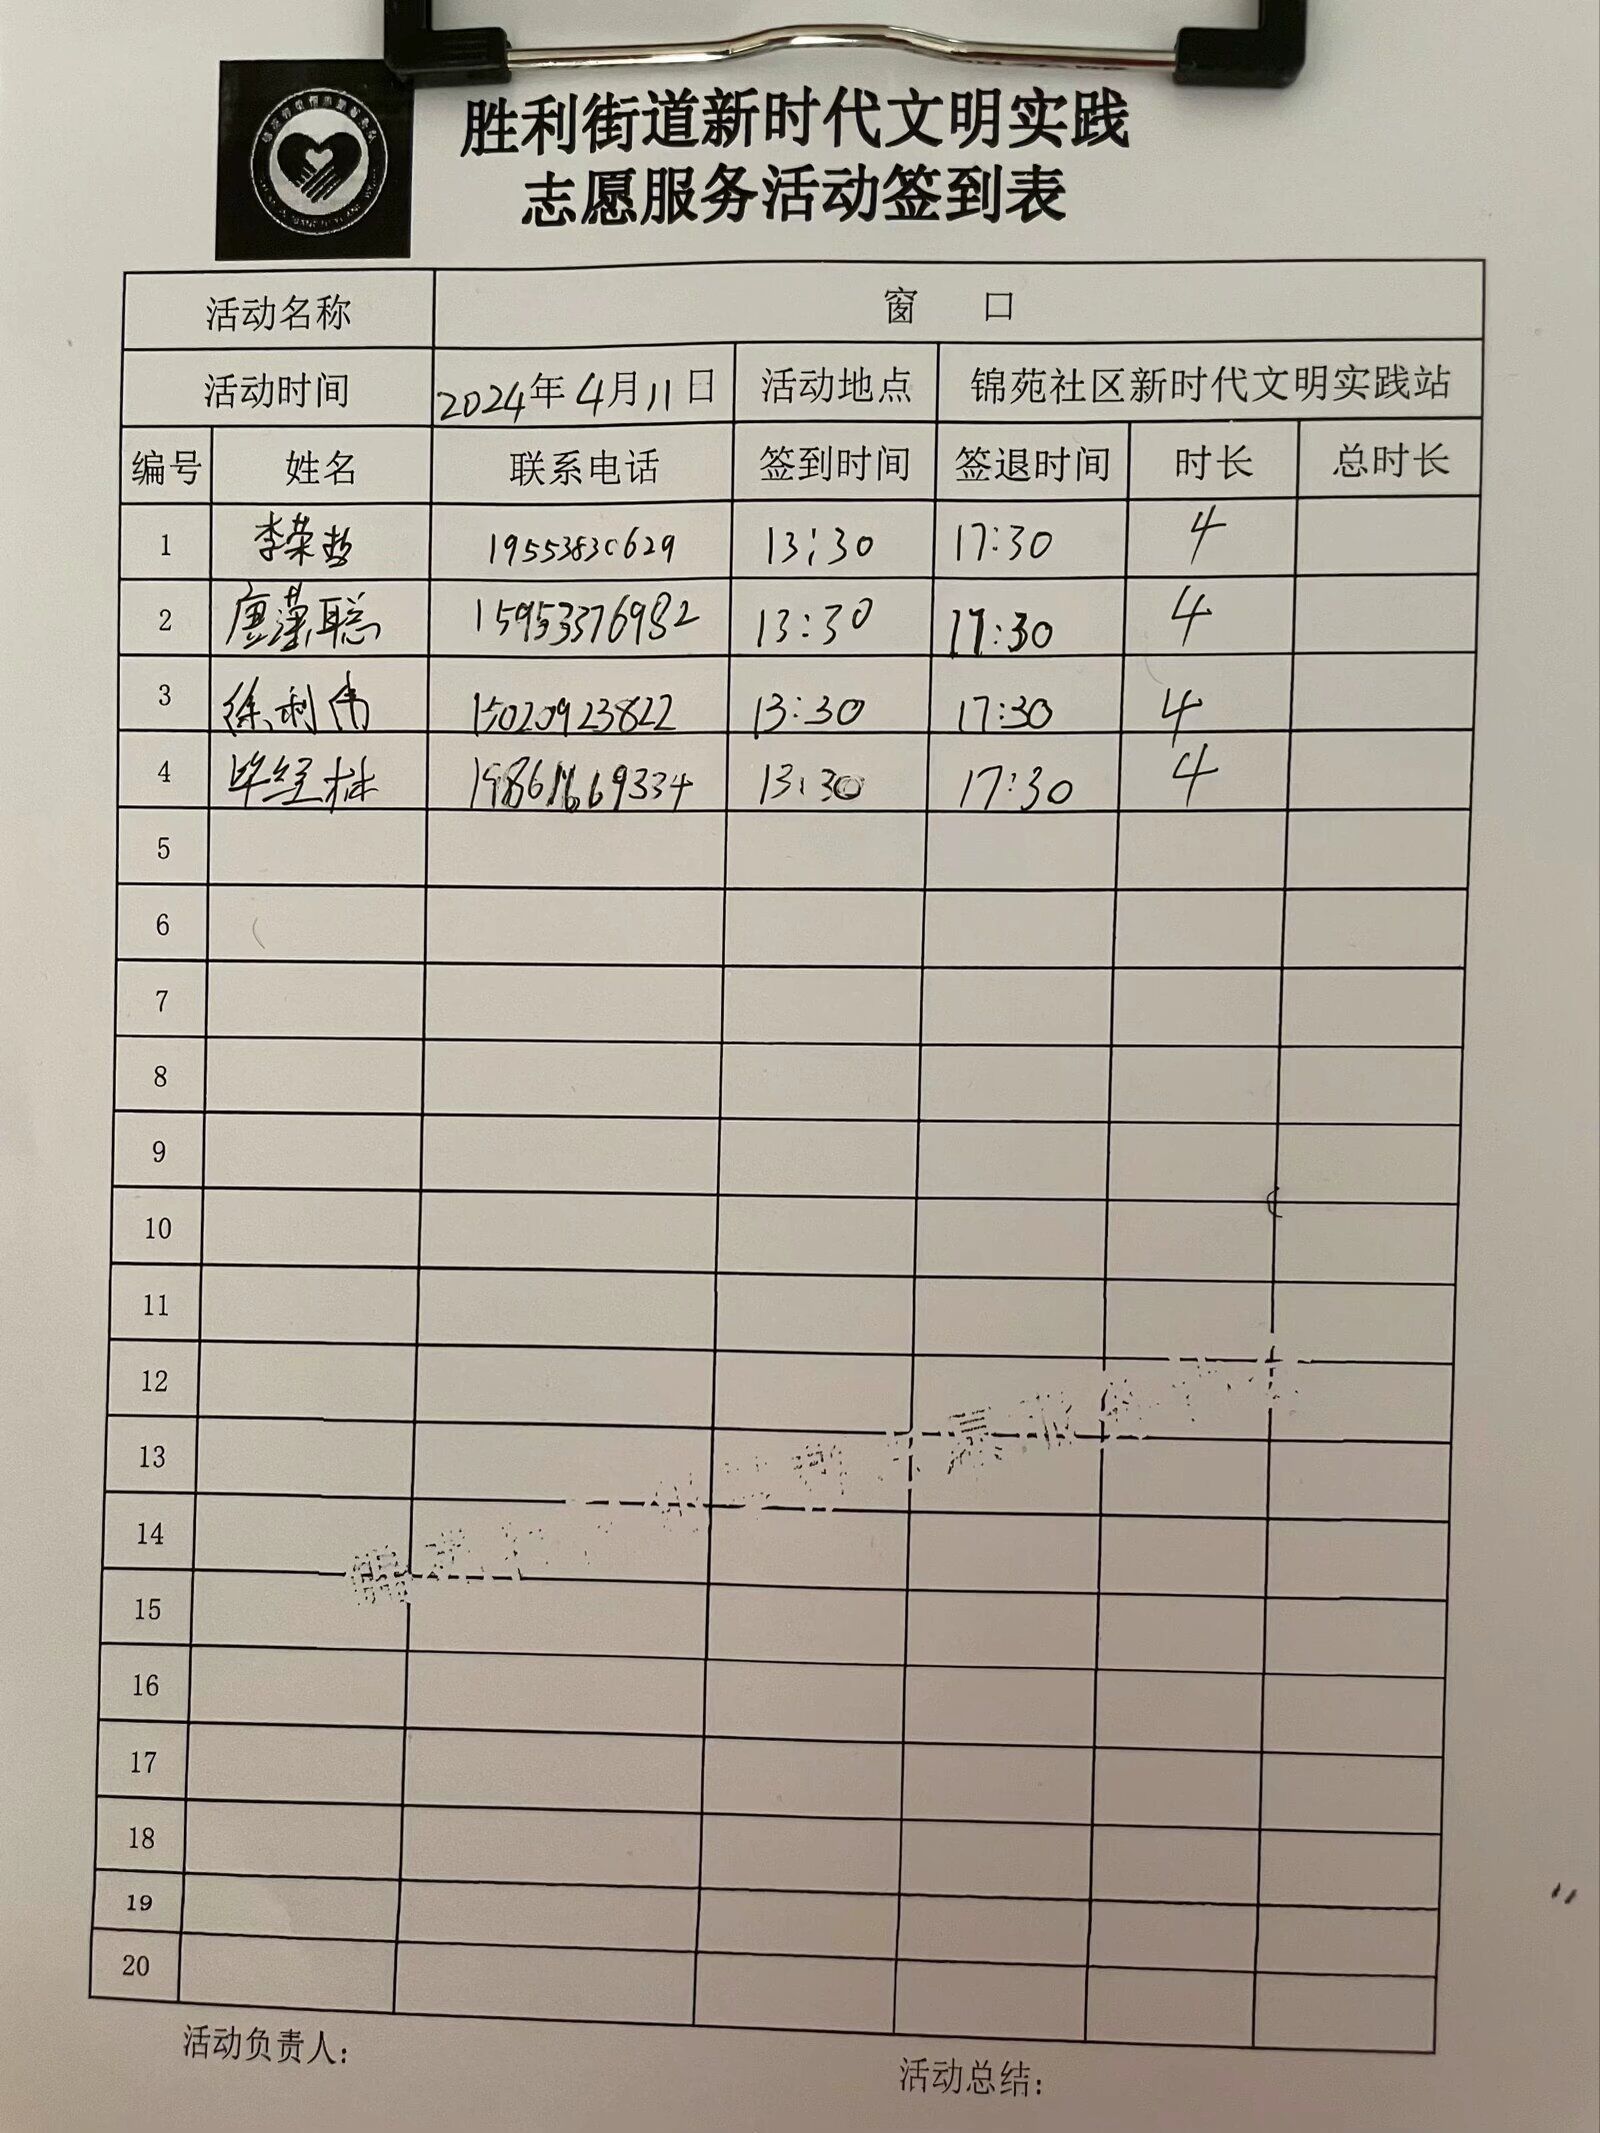 胜利街道新时代文明实践
志愿服务活动签到表
活动名称 窗 口
活动时间 2024年4月11日 活动地点 锦苑社区新时代文明实践站
编号 姓名 联系电话 签到时间 签退时间 时长 总时长
1 李荣哲 19553830629 13:30 17:30 4
2 唐潆聪 15953376982 13:30 17:30 4
3 徐利伟 15020923822 13:30 17:30 4
4 毕经林 13:30 17:30 4
5
6
7
8
9
10
11
12
13
14
15
16
17
18
19
20
活动负责人:
活动总结: